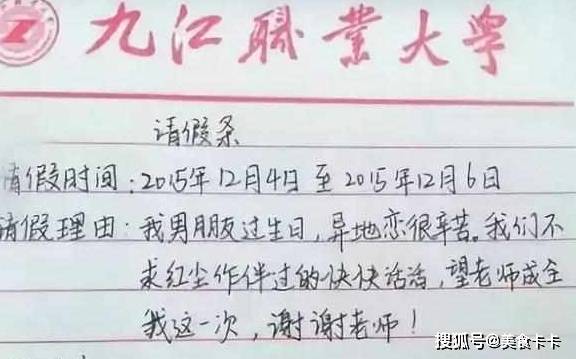 九江職業大学
请假条
请假时间：2015年12月4日至2015年12月6日
请假理由：我男朋友过生日，异地恋很辛苦。我们不
求红尘作伴过的快快活活，望老师成全
我这一次，谢谢老师！
搜狐号@美食卡卡